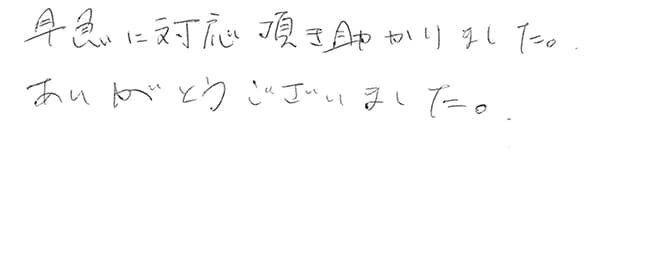 早急に対応頂き助かりました。
ありがとうございました。